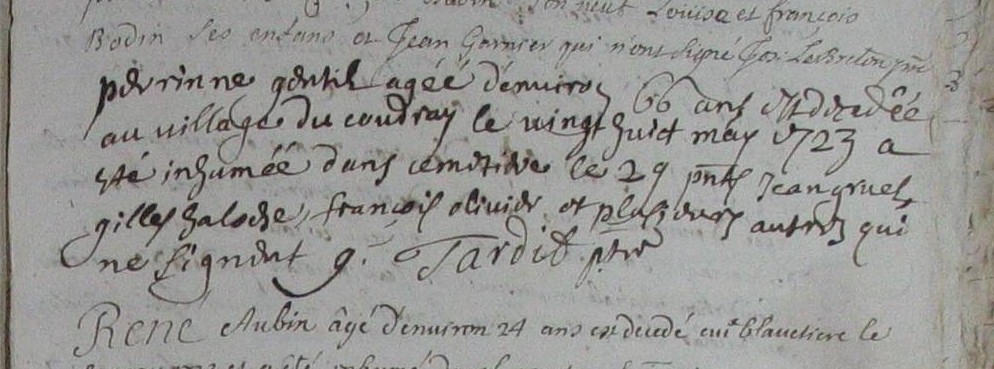 son neut Louise et françois
Bodin ses enfans et Jean Garnier qui n'ont signé Jos. LeBreton ptre
perinne gentil agéé d'enuiron 66 ans est decedéé
au village du coudray le vingt huict may 1723 a
esté inhuméé dans cemetiere le 29 pnts Jean gruel,
gilles haloche, françois oliuier et plusieurs autres qui
ne signent g. Tardif ptre
René Aubin âgé d'environ 24 ans est decedé le